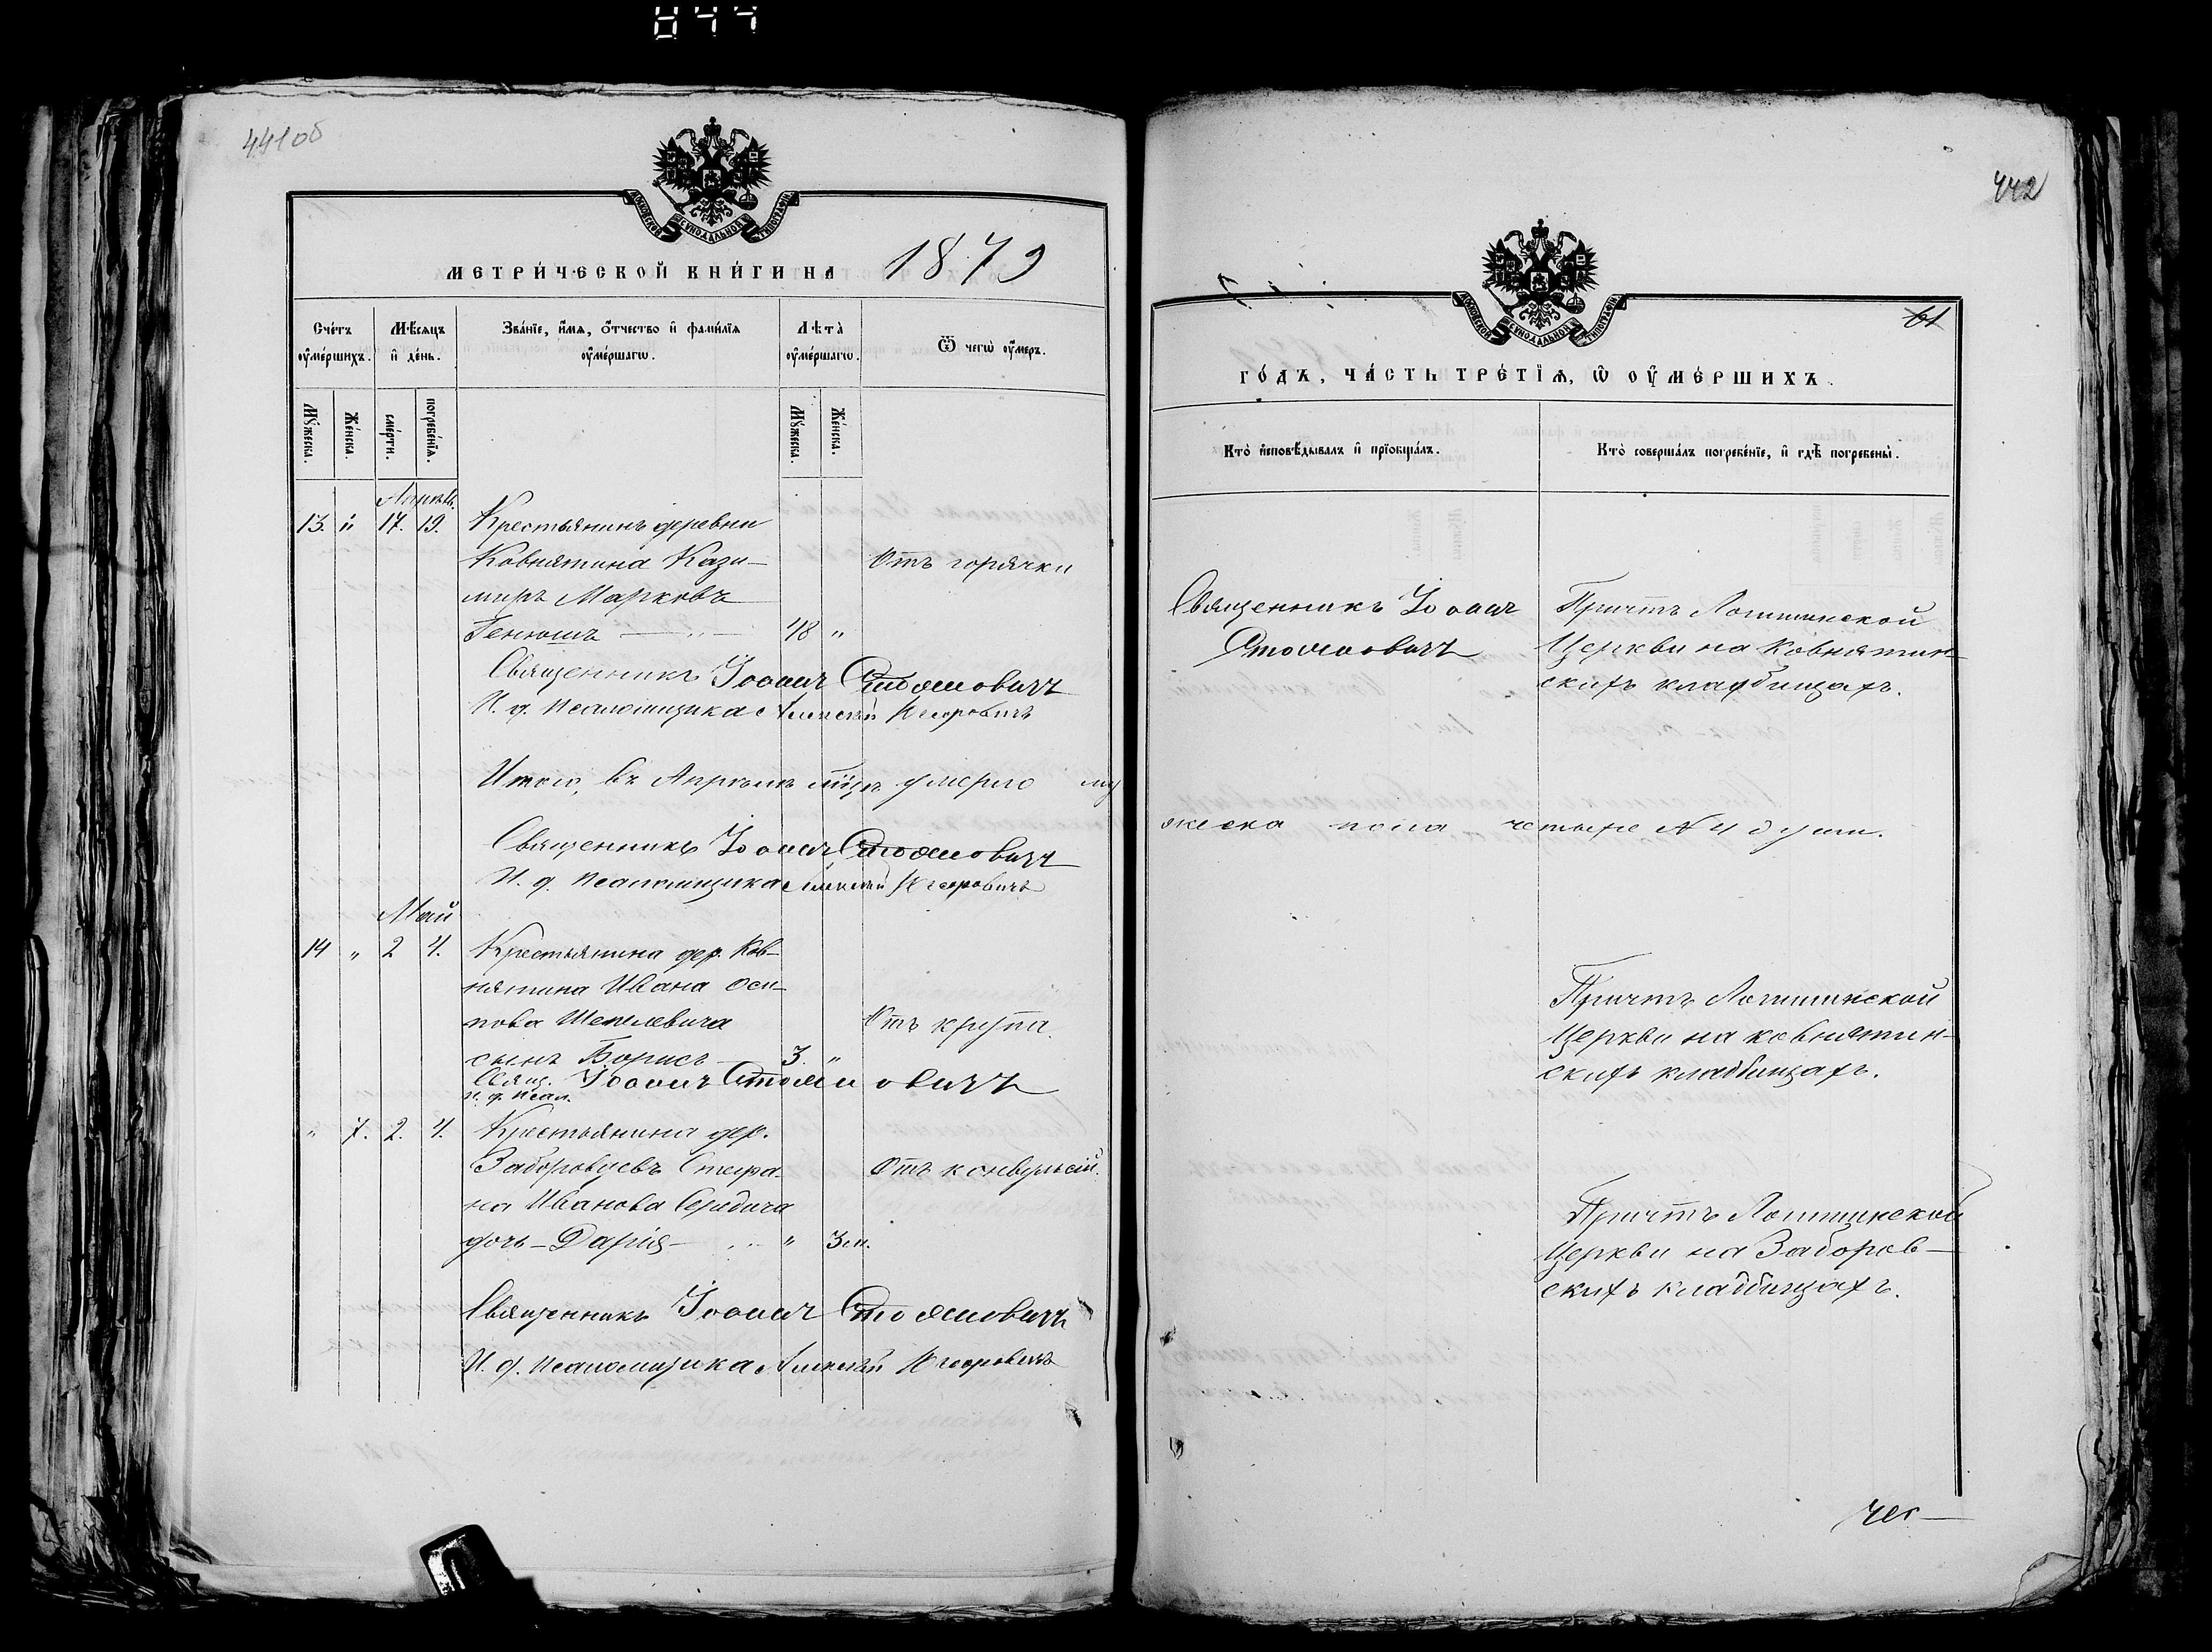 441об
МОСКОВСКОЙ СѴНОДАЛЬНОЙ ТИПОГРАФІИ
МЕТРИ́ЧЕСКОЙ КНИ́ГИ НА 1879
Сче́тъ ᲂу҆ме́ршихъ.
Мѣ́сяцъ и҆ де́нь.
Зва́нїе, и҆́мѧ, ѻ҆́тчество и҆ фами́лїѧ ᲂу҆ме́ршагѡ.
Лѣ́та̀ ᲂу҆ме́ршагѡ.
Ѿ чегѡ̀ ᲂу҆́меръ.
Мꙋ́жеска.
Же́нска.
сме́рти.
погребе́нїѧ.
Мꙋ́жеска.
Же́нска.
Апрѣль
13. " 17. 19. Крестьянинъ деревни
Ковнятина Кази-
миръ Марковъ
Генюшъ — " — 48 "
Отъ горячки
Священникъ Іоаннъ Стояновичъ
И. д. псаломщика Алексѣй
Итого, въ Апрѣлѣ мцѣ умерло му
Священникъ Іоаннъ Стояновичъ
И. д. псаломщика Алексѣй
Май
14 " 2 4. Крестьянина дер. Ков-
нятина Ивана Оси-
пова Шепелевича
сынъ Борисъ — 3. "
Отъ крупа.
Свящ. Іоаннъ Стояновичъ
и. д. псал.
" 7. 2. 4. Крестьянина дер.
Заборовцевъ Стефа-
на Иванова Середича
дочь — Дарія — " 3 м.
Отъ конвульсій.
Священникъ Іоаннъ Стояновичъ
И. д. псаломщика Алексѣй
442
61
МОСКОВСКОЙ СѴНОДАЛЬНОЙ ТИПОГРАФІИ
ГО́ДЪ, ЧА́СТЬ ТРЕ́ТЇѦ, Ѡ҆ ОУ҆МЕ́РШИХЪ.
Кто̀ и҆сповѣ́дывалъ и҆ прїѡбща́лъ.
Кто̀ соверша́лъ погребе́нїе, и҆ гдѣ̀ погребены̀.
Священникъ Іоаннъ
Стояновичъ
Причтъ Логишинской
Церкви на Ковнятин-
скихъ кладбищахъ.
жеска пола четыре № 4 души.
Причтъ Логишинской
Церкви на Ковнятин-
скихъ кладбищахъ.
Причтъ Логишинской
Церкви на Заборов-
скихъ кладбищахъ.